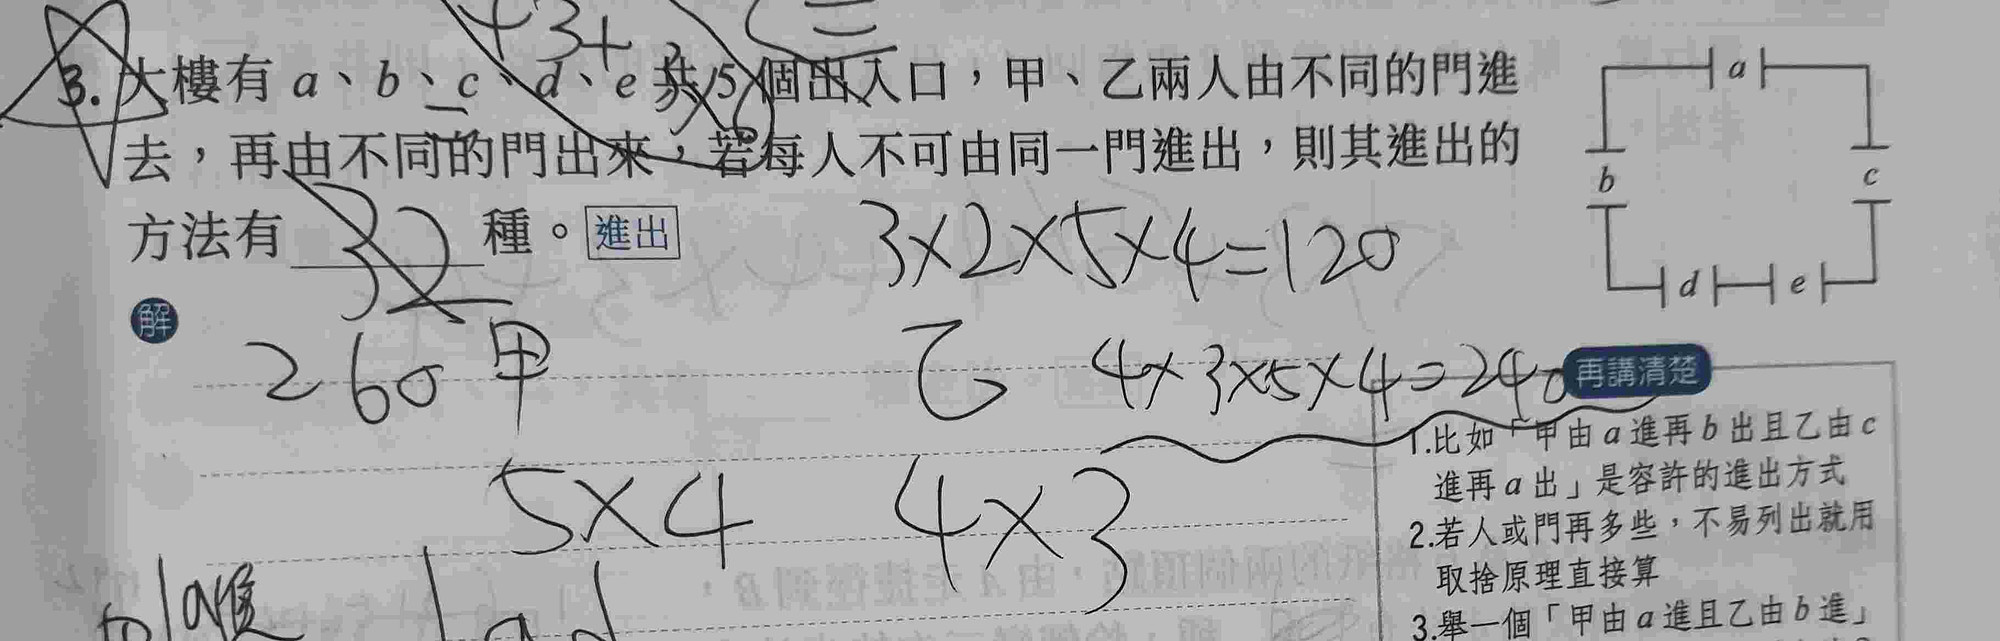 +3+
3. 大樓有 a、b、c、d、e 共 5 個出入口，甲、乙兩人由不同的門進
去，再由不同的門出來，若每人不可由同一門進出，則其進出的
方法有 32 種。進出
3×2×5×4=120
a
b
c
d
e
解
260 甲
乙 4×3×5×4=240
5×4
4×3
再講清楚
1.比如「甲由 a 進再 b 出且乙由 c
進再 a 出」是容許的進出方式
2.若人或門再多些，不易列出就用
取捨原理直接算
3.舉一個「甲由 a 進且乙由 b 進」
a進